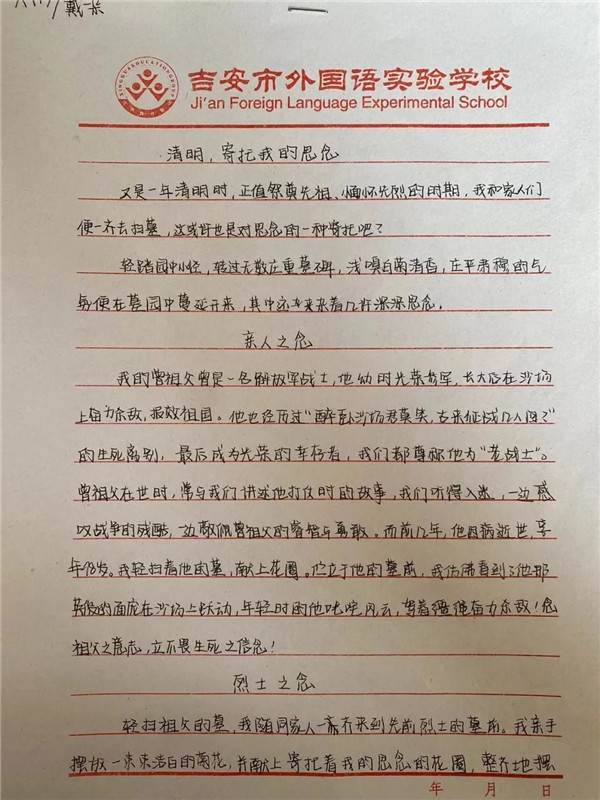 戴一
XINGXUAN EDUCATION GROUP
吉安市外国语实验学校
Ji'an Foreign Language Experimental School
清明，寄托我的思念
又是一年清明时，正值祭奠先祖、缅怀先烈的时期，我和家人们
便一齐去扫墓，这或许也是对思念的一种寄托吧？
轻踏园中小径，转过无数庄重墓碑，浅嗅白菊清香，庄严肃穆的气
氛便在墓园中蔓延开来，其中还夹杂着几许深深思念。
亲人之念
我的曾祖父曾是一名解放军战士，他幼时光荣参军，长大后在沙场
上奋力杀敌，报效祖国。他也经历过“醉卧沙场君莫笑，古来征战几人回？”
的生死离别，最后成为光荣的幸存者，我们都尊称他为“老战士”。
曾祖父在世时，常与我们讲述他打仗时的故事，我们听得入迷，一边感
叹战争的残酷，一边敬佩曾祖父的睿智与勇敢。而前几年，他因病逝世，享
年98岁。我轻扫着他的墓，献上花圈。伫立于他的墓前，我仿佛看到了他那
英俊的面庞在沙场上跃动，年轻时的他叱咤风云，驾着疆绳奋力杀敌！念
祖父之意志，立不畏生死之信念！
烈士之念
轻扫祖父的墓，我随同家人一齐来到先前烈士的墓前。我亲手
摆放一束束洁白的菊花，并献上寄托着我的思念的花圈，整齐地摆
年 月 日